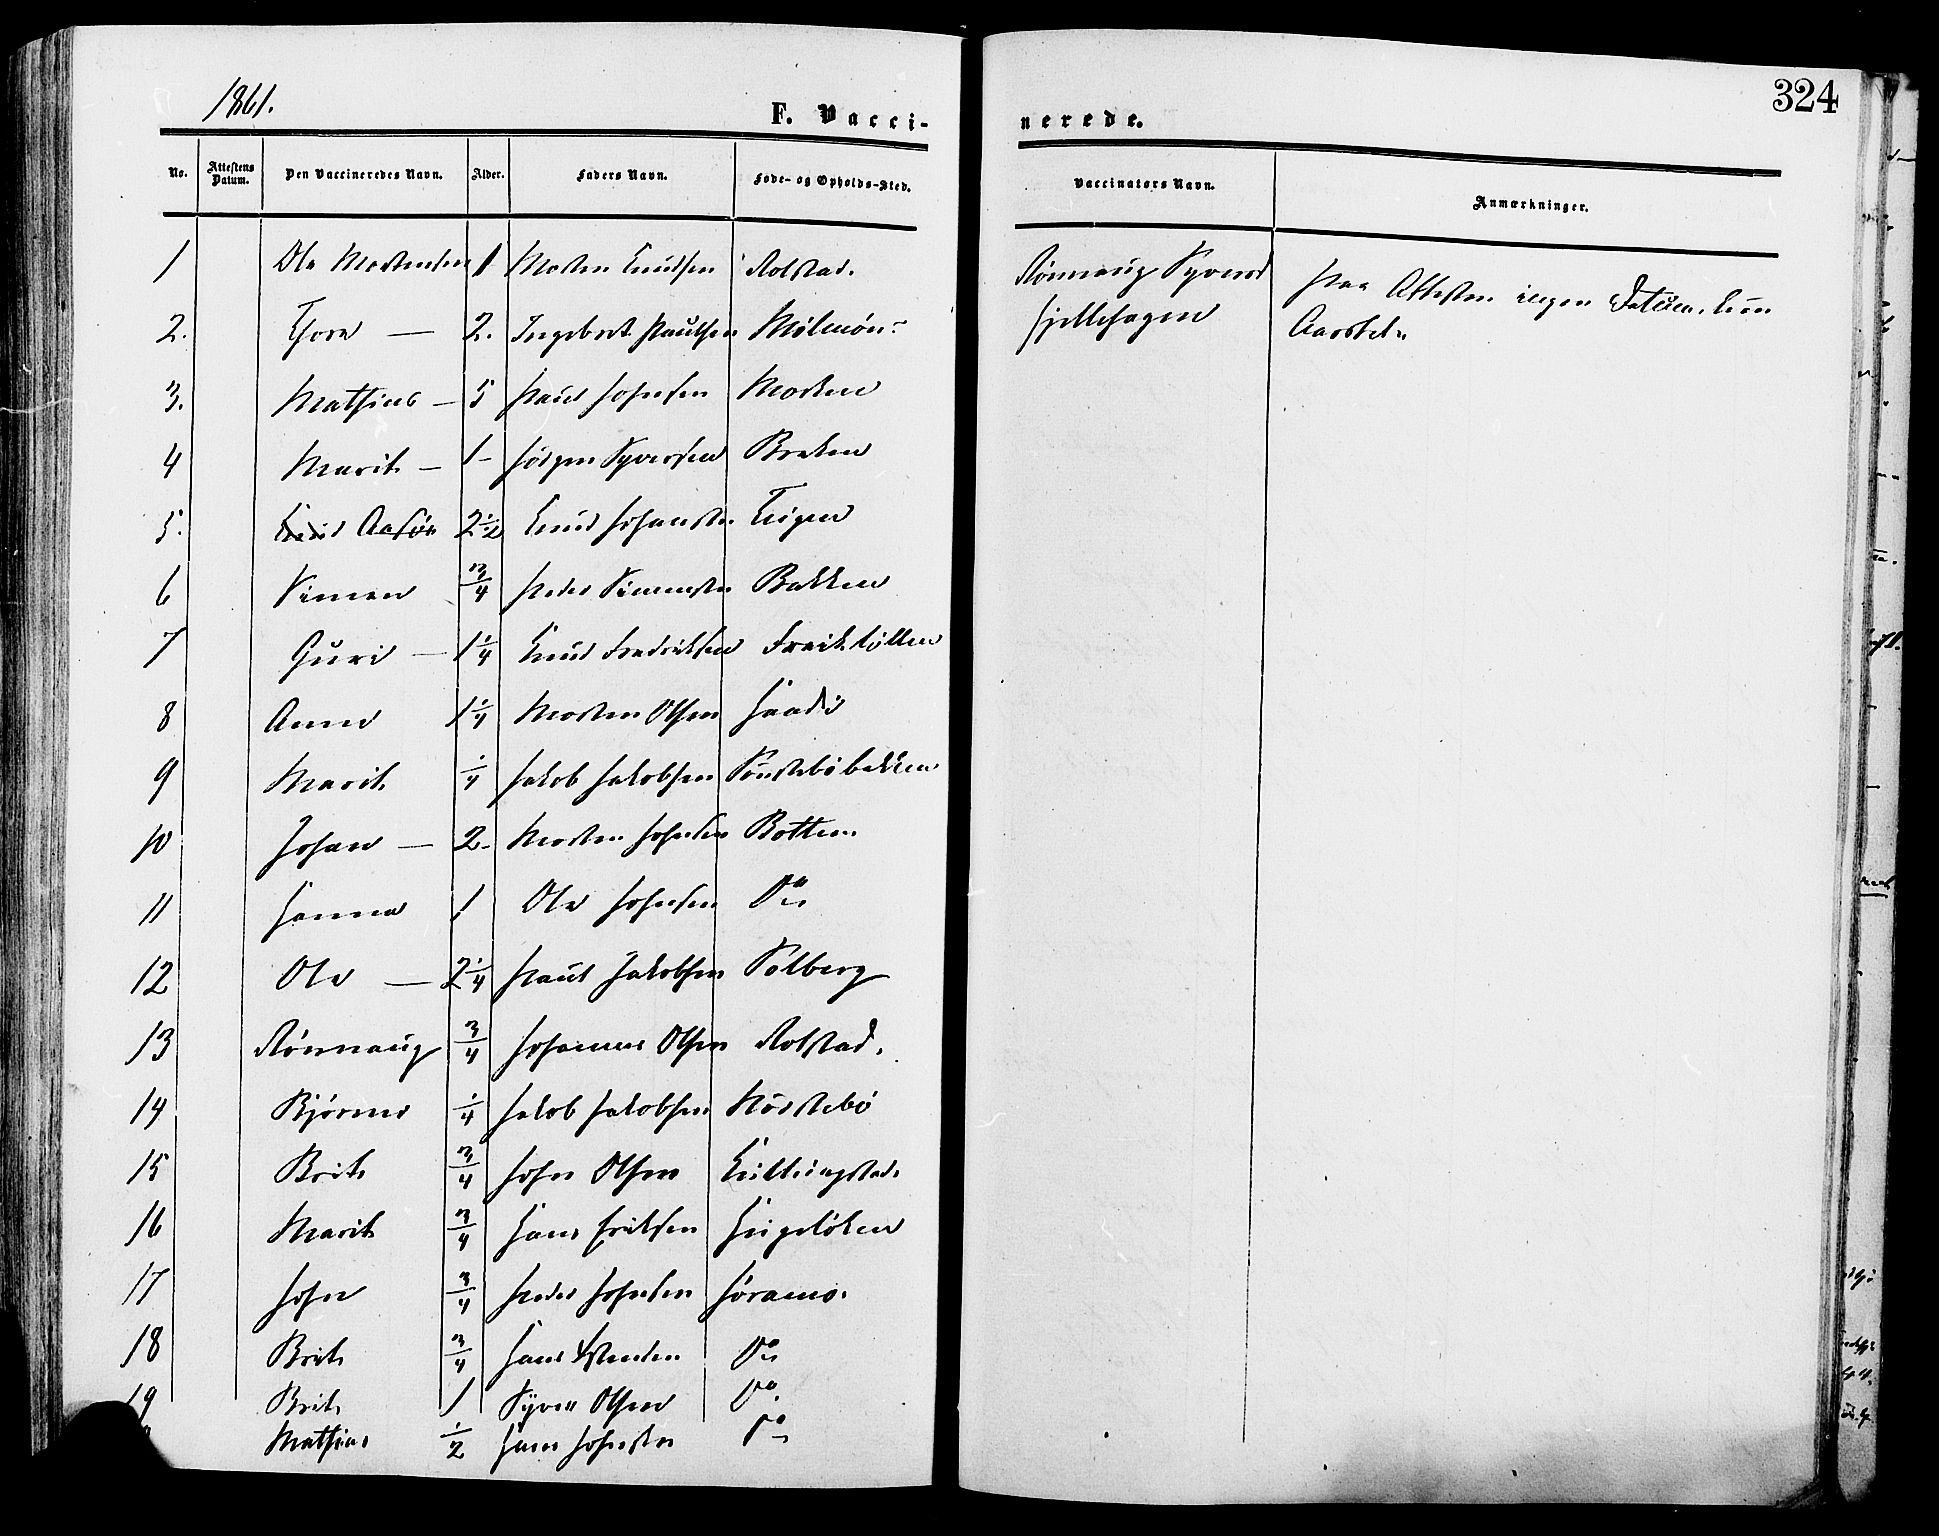 1861.
F. Vacci-
nerede.
324
No. Attestens Datum. Den Vaccineredes Navn. Alder. Faders Navn. Føde- og Opholds-Sted. Vaccinators Navn. Anmærkninger.
1 Ole Mortensen 1 Morten Knudsen Rolstad. Rønnaug Syversd Paa Attesten ingen Datum, kun
2. Thore — 2. Ingebret Paulsen Aarstal
3. Mathias — 5 Paul Johnsen Morken
4 Marit — 1- Jørgen Syversen Braken
5. 2½ Knud Johansen
6 Simen ¾ Peder Simensen Bakken
7 Guri — 1¼ Knud Fredriksen
8 Anne 1¼ Morten Olsen
9 Marit ¼ Jakob Jakobsen
10 Johan — 2- Morten Johnsen Botten
11 Hanna 1 Ole Johnsen Do
12 Ole — 2¼ Paul Jakobsen Solberg
13 Rønnaug ¾ Johannes Olsen Rolstad.
14 Bjørner ¼ Jakob Jakobsen
15 Brit ¾ John Olsen
16 Marit ¾ Hans Eriksen
17 John ¾ Peder Johnsen Jøramo.
18 Brit ¾ Hans Do
19 Brit 1 Syver Olsen Do
Mathias ½ Hans Johnsen Do